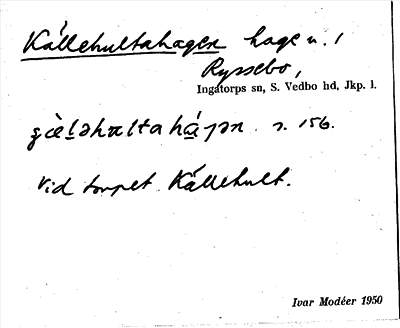 Källehultahagen hage u. /
Ryssebo,
Ingatorps sn, S. Vedbo hd, Jkp. l.
s. 156.
Vid torpet Källehult.
Ivar Modéer 1950